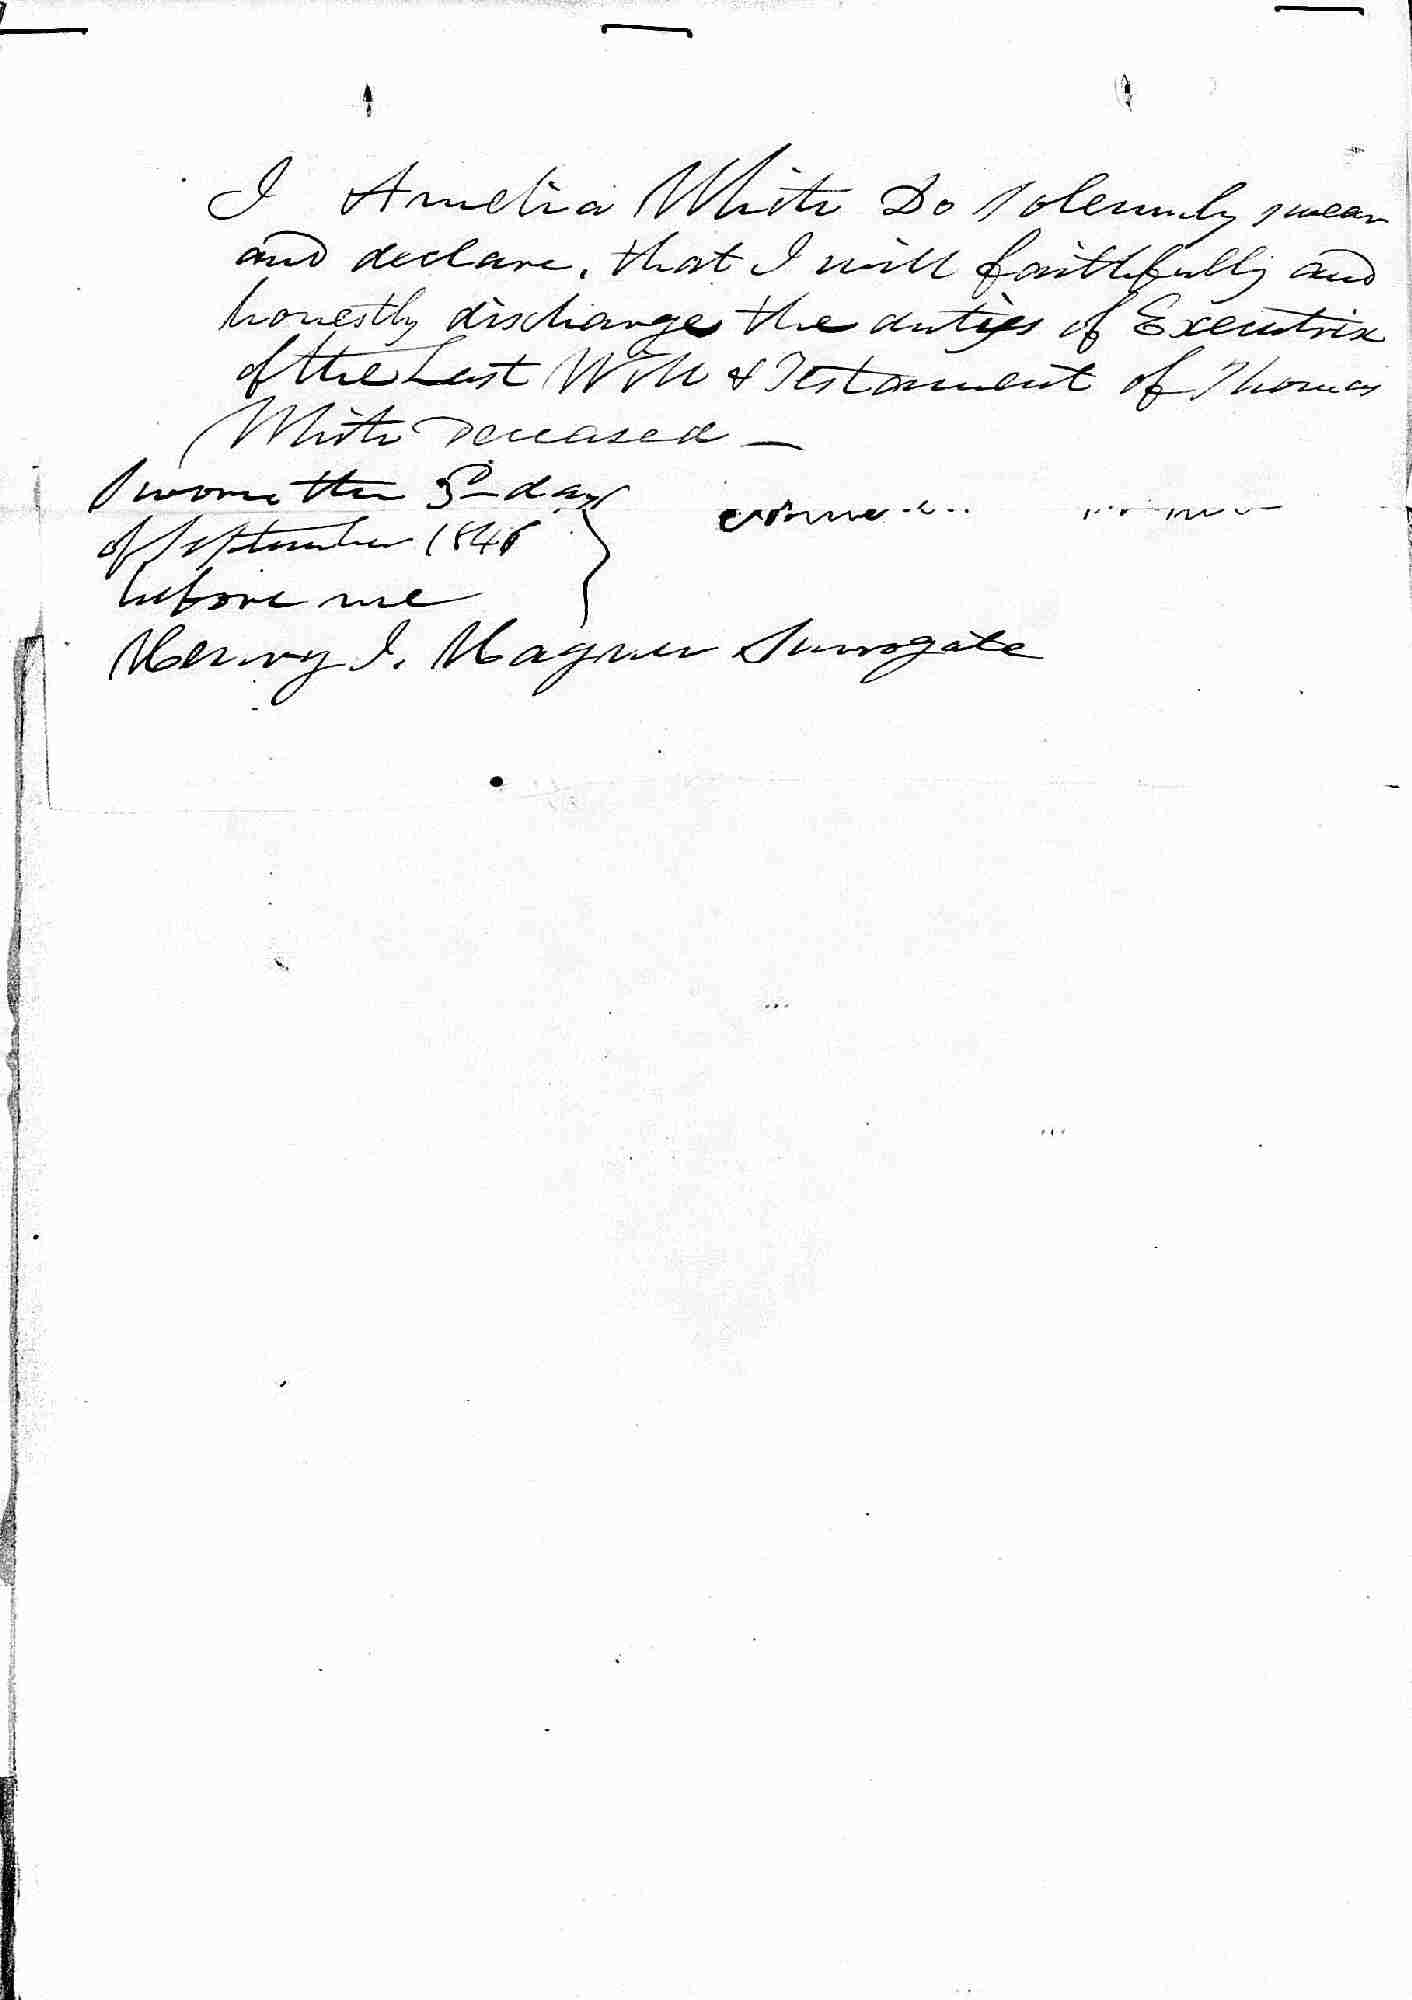 I Amelia White Do Solemnly swear
and declare, that I will faithfully and
honestly discharge the duties of Executrix
of the Last Will & Testament of Thomas
White Deceased —
Sworn the day
of September 1846
before me
Henry I. Hagner Surrogate